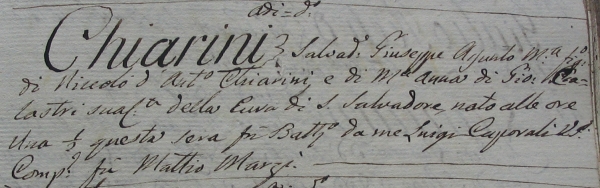 adi = d.º
Chiarini Salvad.e Giuseppe Agusto M.a fig.o
di Niccolò d'Ant.o Chiarini, e di M.a Anna di Gio:
lastri sua C.ta della Cura di S. Salvadore nato alle ore
Una ½ questa sera fù Batt.o da me Luigi Caporali
Comp.e fù Mattio Marzi